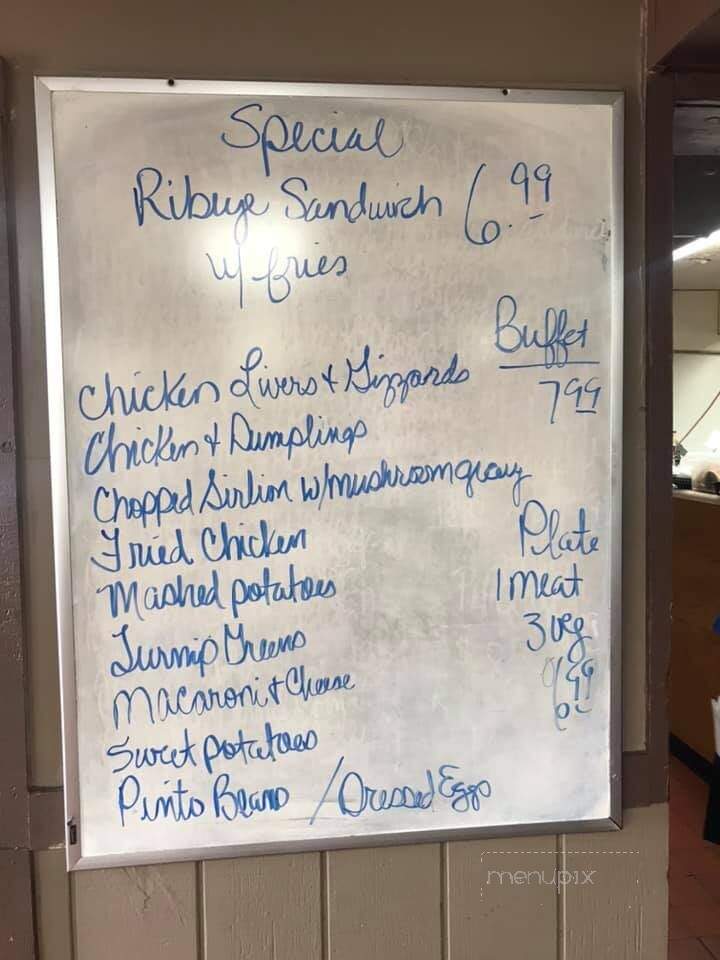 Special
Ribeye Sandwich 6.99
w/ fries
Buffet
7.99
Chicken Livers & Gizzards
Chicken & Dumplings
Chopped Sirlion w/mushroom gravy
Fried Chicken
Mashed potatoes
Turnip Greens
Macaroni & Cheese
Sweet potatoes
Pinto Beans / Dressed Eggs
Plate
1 meat
3 veg
6.99
menupix